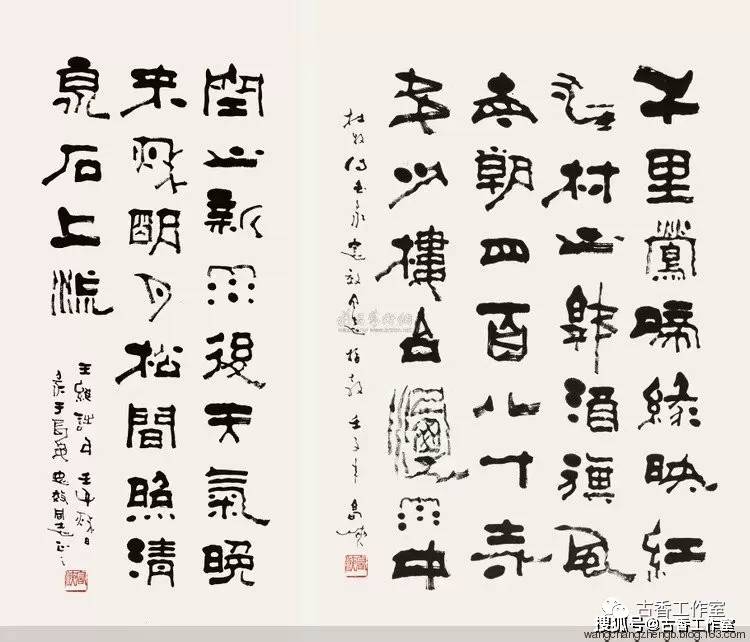 千里鶯啼緑映紅
水村山郭酒旗風
南朝四百八十寺
多少樓台煙雨中
杜牧
空山新雨後天氣晚
来秋明月松間照清
泉石上流
王維詩句
古香工作室
搜狐号@古香工作室
wangchangzhengb.blog.163.com